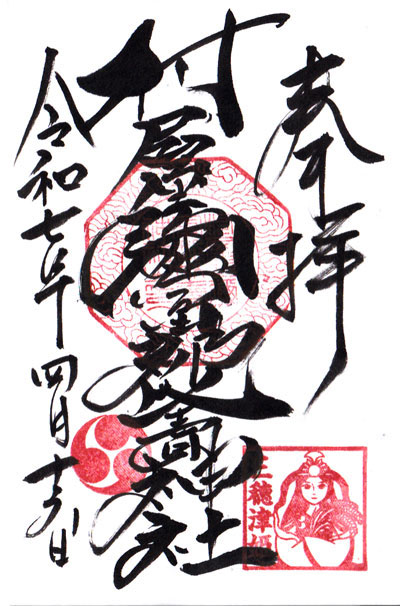 奉拝
村屋坐彌冨都比賣神社
令和七年四月
三穂津姫